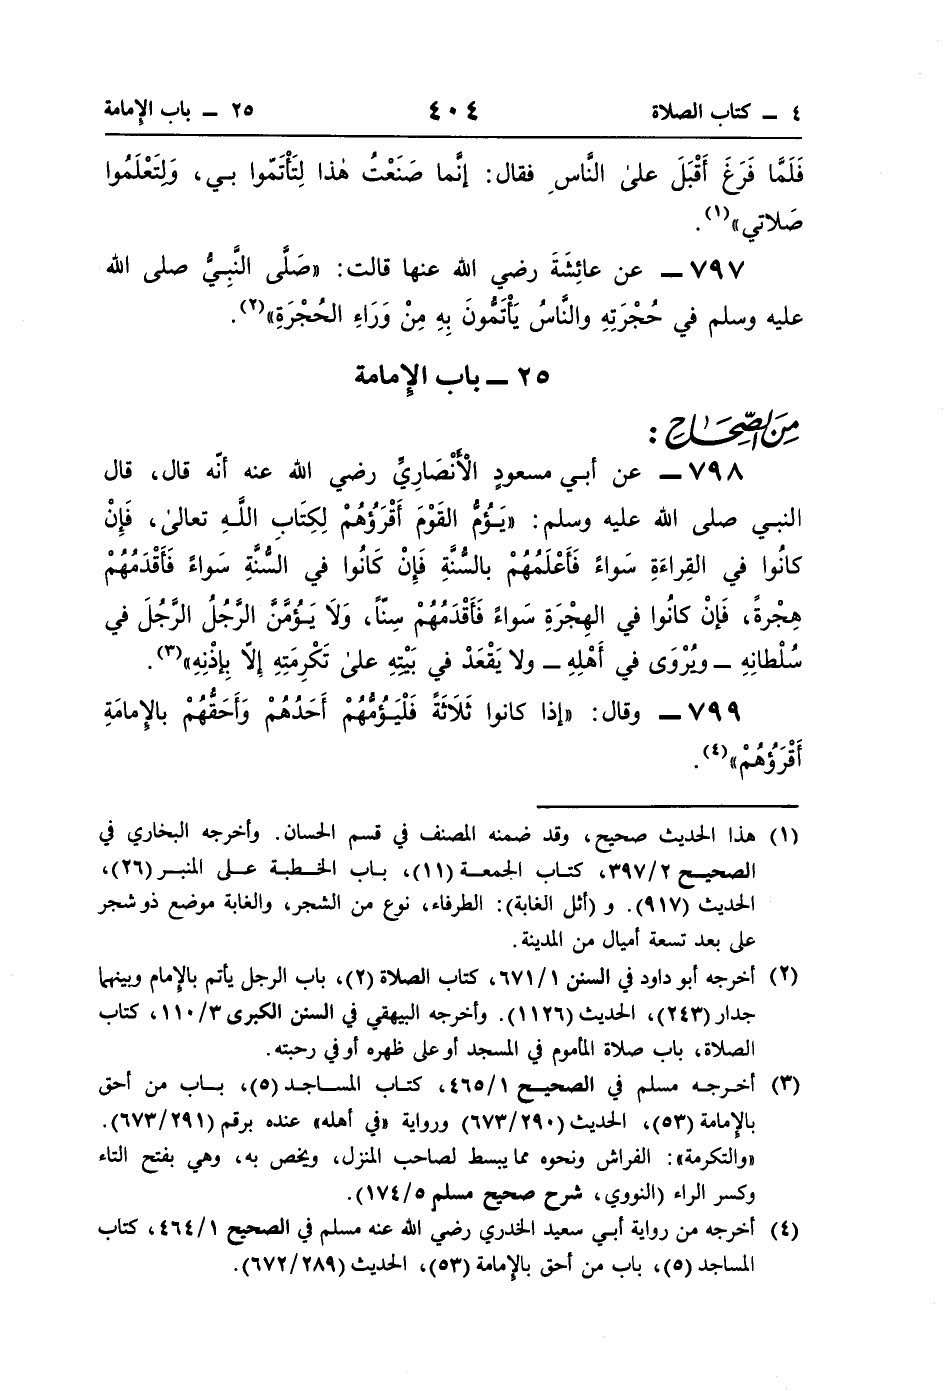 ٤ ــ كتاب الصلاة ٤٠٤ ٢٥ ــ باب الإمامة
فَلَمَّا فَرَغَ أَقْبَلَ علىٰ النَّاسِ فقال: إنَّما صَنَعْتُ هٰذا لِتَأْتَمّوا بـي، وَلِتَعْلَمُوا
صَلاتي»(١).
٧٩٧ ــ عن عائِشَةَ رضي الله عنها قالت: «صَلَّى النَّبِيُّ صلى الله
عليه وسلم في حُجْرَتِهِ والنَّاسُ يَأْتَمُّونَ بِهِ مِنْ وَرَاءِ الحُجْرَةِ»(٢).
٢٥ ــ باب الإمامة
مِنَ الصِّحَاحِ:
٧٩٨ ــ عن أبـي مسعودٍ الأَنْصَارِيِّ رضي الله عنه أنّه قال، قال
النبي صلى الله عليه وسلم: «يَـؤُمُّ القَوْمَ أَقْرَؤُهُمْ لِكِتَابِ اللَّـهِ تعالىٰ، فَإِنْ
كانُوا في القِراءَةِ سَواءً فَأَعْلَمُهُمْ بالسُّنَّةِ فَإِنْ كَانُوا في السُّنَّةِ سَواءً فَأَقْدَمُهُمْ
هِجْرةً، فَإِنْ كانُوا في الهِجْرَةِ سَواءً فَأَقْدَمُهُمْ سِنّاً، وَلَا يَـؤُمَّنَّ الرَّجُلُ الرَّجُلَ في
سُلْطانِهِ ــ ويُرْوَى في أَهْلِهِ ــ ولا يَقْعَدْ في بَيْتِهِ علىٰ تَكْرِمَتِهِ إلاّ بِإِذْنِهِ»(٣).
٧٩٩ ــ وقال: «إذا كانوا ثَلَاثَةً فَلْيَـؤُمُّهُمْ أَحَدُهُمْ وَأَحَقُّهُمْ بالإِمامَةِ
أَقْرَؤُهُمْ»(٤).
(١) هذا الحديث صحيح، وقد ضمنه المصنف في قسم الحسان. وأخرجه البخاري في
الصحيـح ٣٩٧/٢، كتـاب الجمعـة (١١)، بـاب الخـطبـة عـلى المنبـر (٢٦)،
الحديث (٩١٧). و (أثل الغابة): الطرفاء، نوع من الشجر، والغابة موضع ذو شجر
على بعد تسعة أميال من المدينة.
(٢) أخرجه أبو داود في السنن ٦٧١/١، كتاب الصلاة (٢)، باب الرجل يأتم بالإمام وبينهما
جدار (٢٤٣)، الحديث (١١٢٦). وأخرجه البيهقي في السنن الكبرى ١١٠/٣، كتاب
الصلاة، باب صلاة المأموم في المسجد أو على ظهره أو في رحبته.
(٣) أخـرجـه مسلم في الصحيـح ٤٦٥/١، كتـاب المسـاجـد (٥)، بـاب من أحق
بالإمامة (٥٣)، الحديث (٦٧٣/٢٩٠) ورواية «في أهله» عنده برقم (٦٧٣/٢٩١).
«والتكرمة»: الفراش ونحوه مما يبسط لصاحب المنزل، ويخص به، وهي بفتح التاء
وكسر الراء (النووي، شرح صحيح مسلم ١٧٤/٥).
(٤) أخرجه من رواية أبـي سعيد الخدري رضي الله عنه مسلم في الصحيح ٤٦٤/١، كتاب
المساجد (٥)، باب من أحق بالإمامة (٥٣)، الحديث (٦٧٢/٢٨٩).